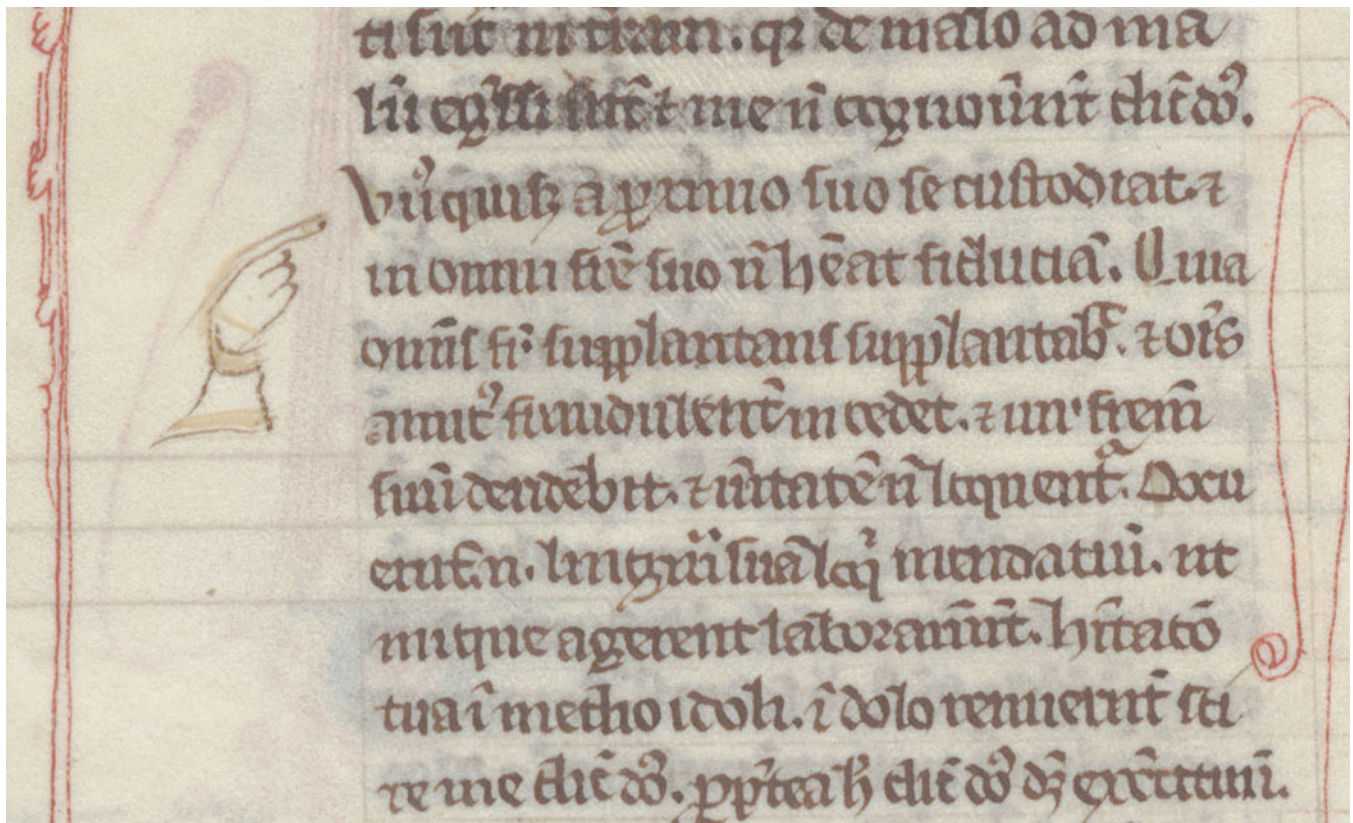 ti sūt in t̄ram. qꝛ de malo ad ma
lū eg̃ssi sūt ⁊ me n̄ cognoūūt dic̄ dōꝰ.
Vn̄ꝰquisqꝫ a ꝓximo suo se custodiat. ⁊
in omni frē suo n̄ hēat fiduciā. Quia
omīs fr̄ supplantans supplantabᵗ. ⁊ oīs
amicꝰ fraudulent̄ incedet. ⁊ uir frem̄
suū deridebit. ⁊ ūitatē n̄ loquentᷣ. Docu
erūt .n. linguā suā loqⁱ mendatiū. ut
inique agerent laborauūt. hītatō
tua ī medio idoli. ī dolo renuerūt sci
re me dic̄ dōꝰ. ꝓpterea h̄ dic̄ dōꝰ dꝫ exc̄ituū.